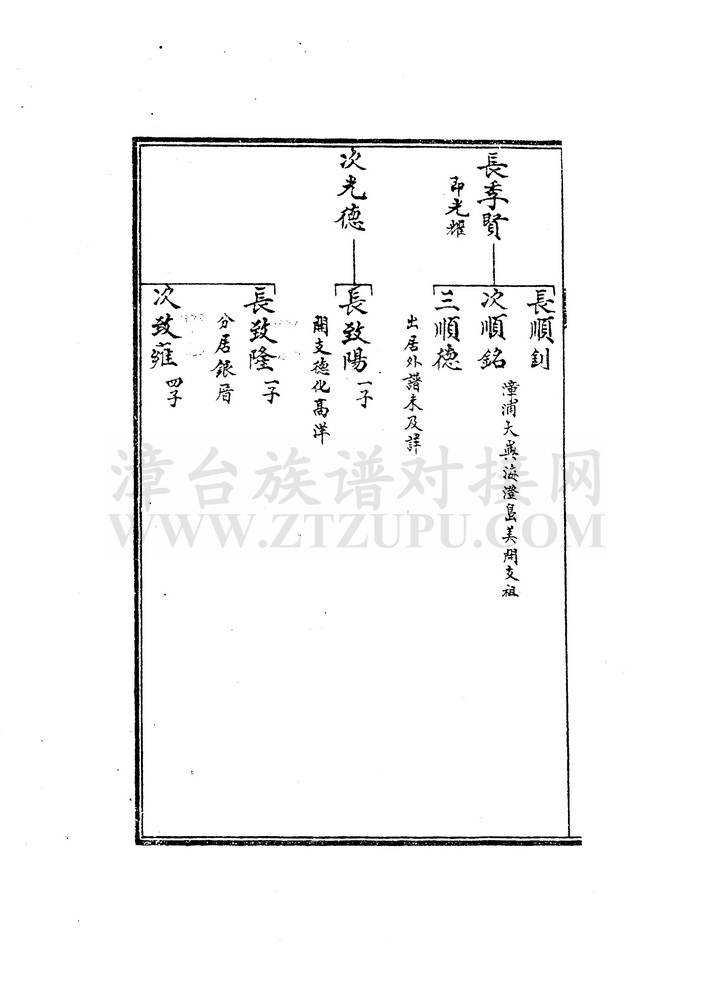 長季賢
即光耀
次光德
長順釗
次順銘
漳浦大興海澄島美開支祖
三順德
出居外譜未及詳
長致陽 一子
開支德化高洋
長致隆 一子
分居銀厝
次致雍 四子
漳台族谱对接网
WWW.ZTZUPU.COM